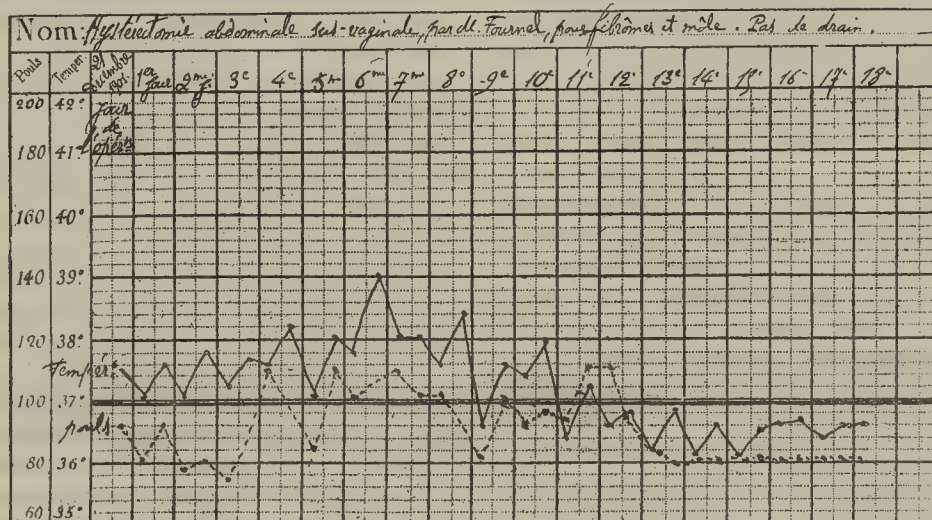 Nom: Hystérectomie abdominale sus-vaginale, par M. Fournel, pour fibrômes et môle. Pas de drain.
Pouls Temper. 27 Décembre 1er Jour 2me j. 3e 4e 5m 6me 7m 8e 9e 10e 11e 12e 13e 14e 15e 16e 17e 18e
Jour de l'opért.
200 42°
180 41°
160 40°
140 39°
120 38°
Tempér.
100 37°
pouls
80 36°
60 35°